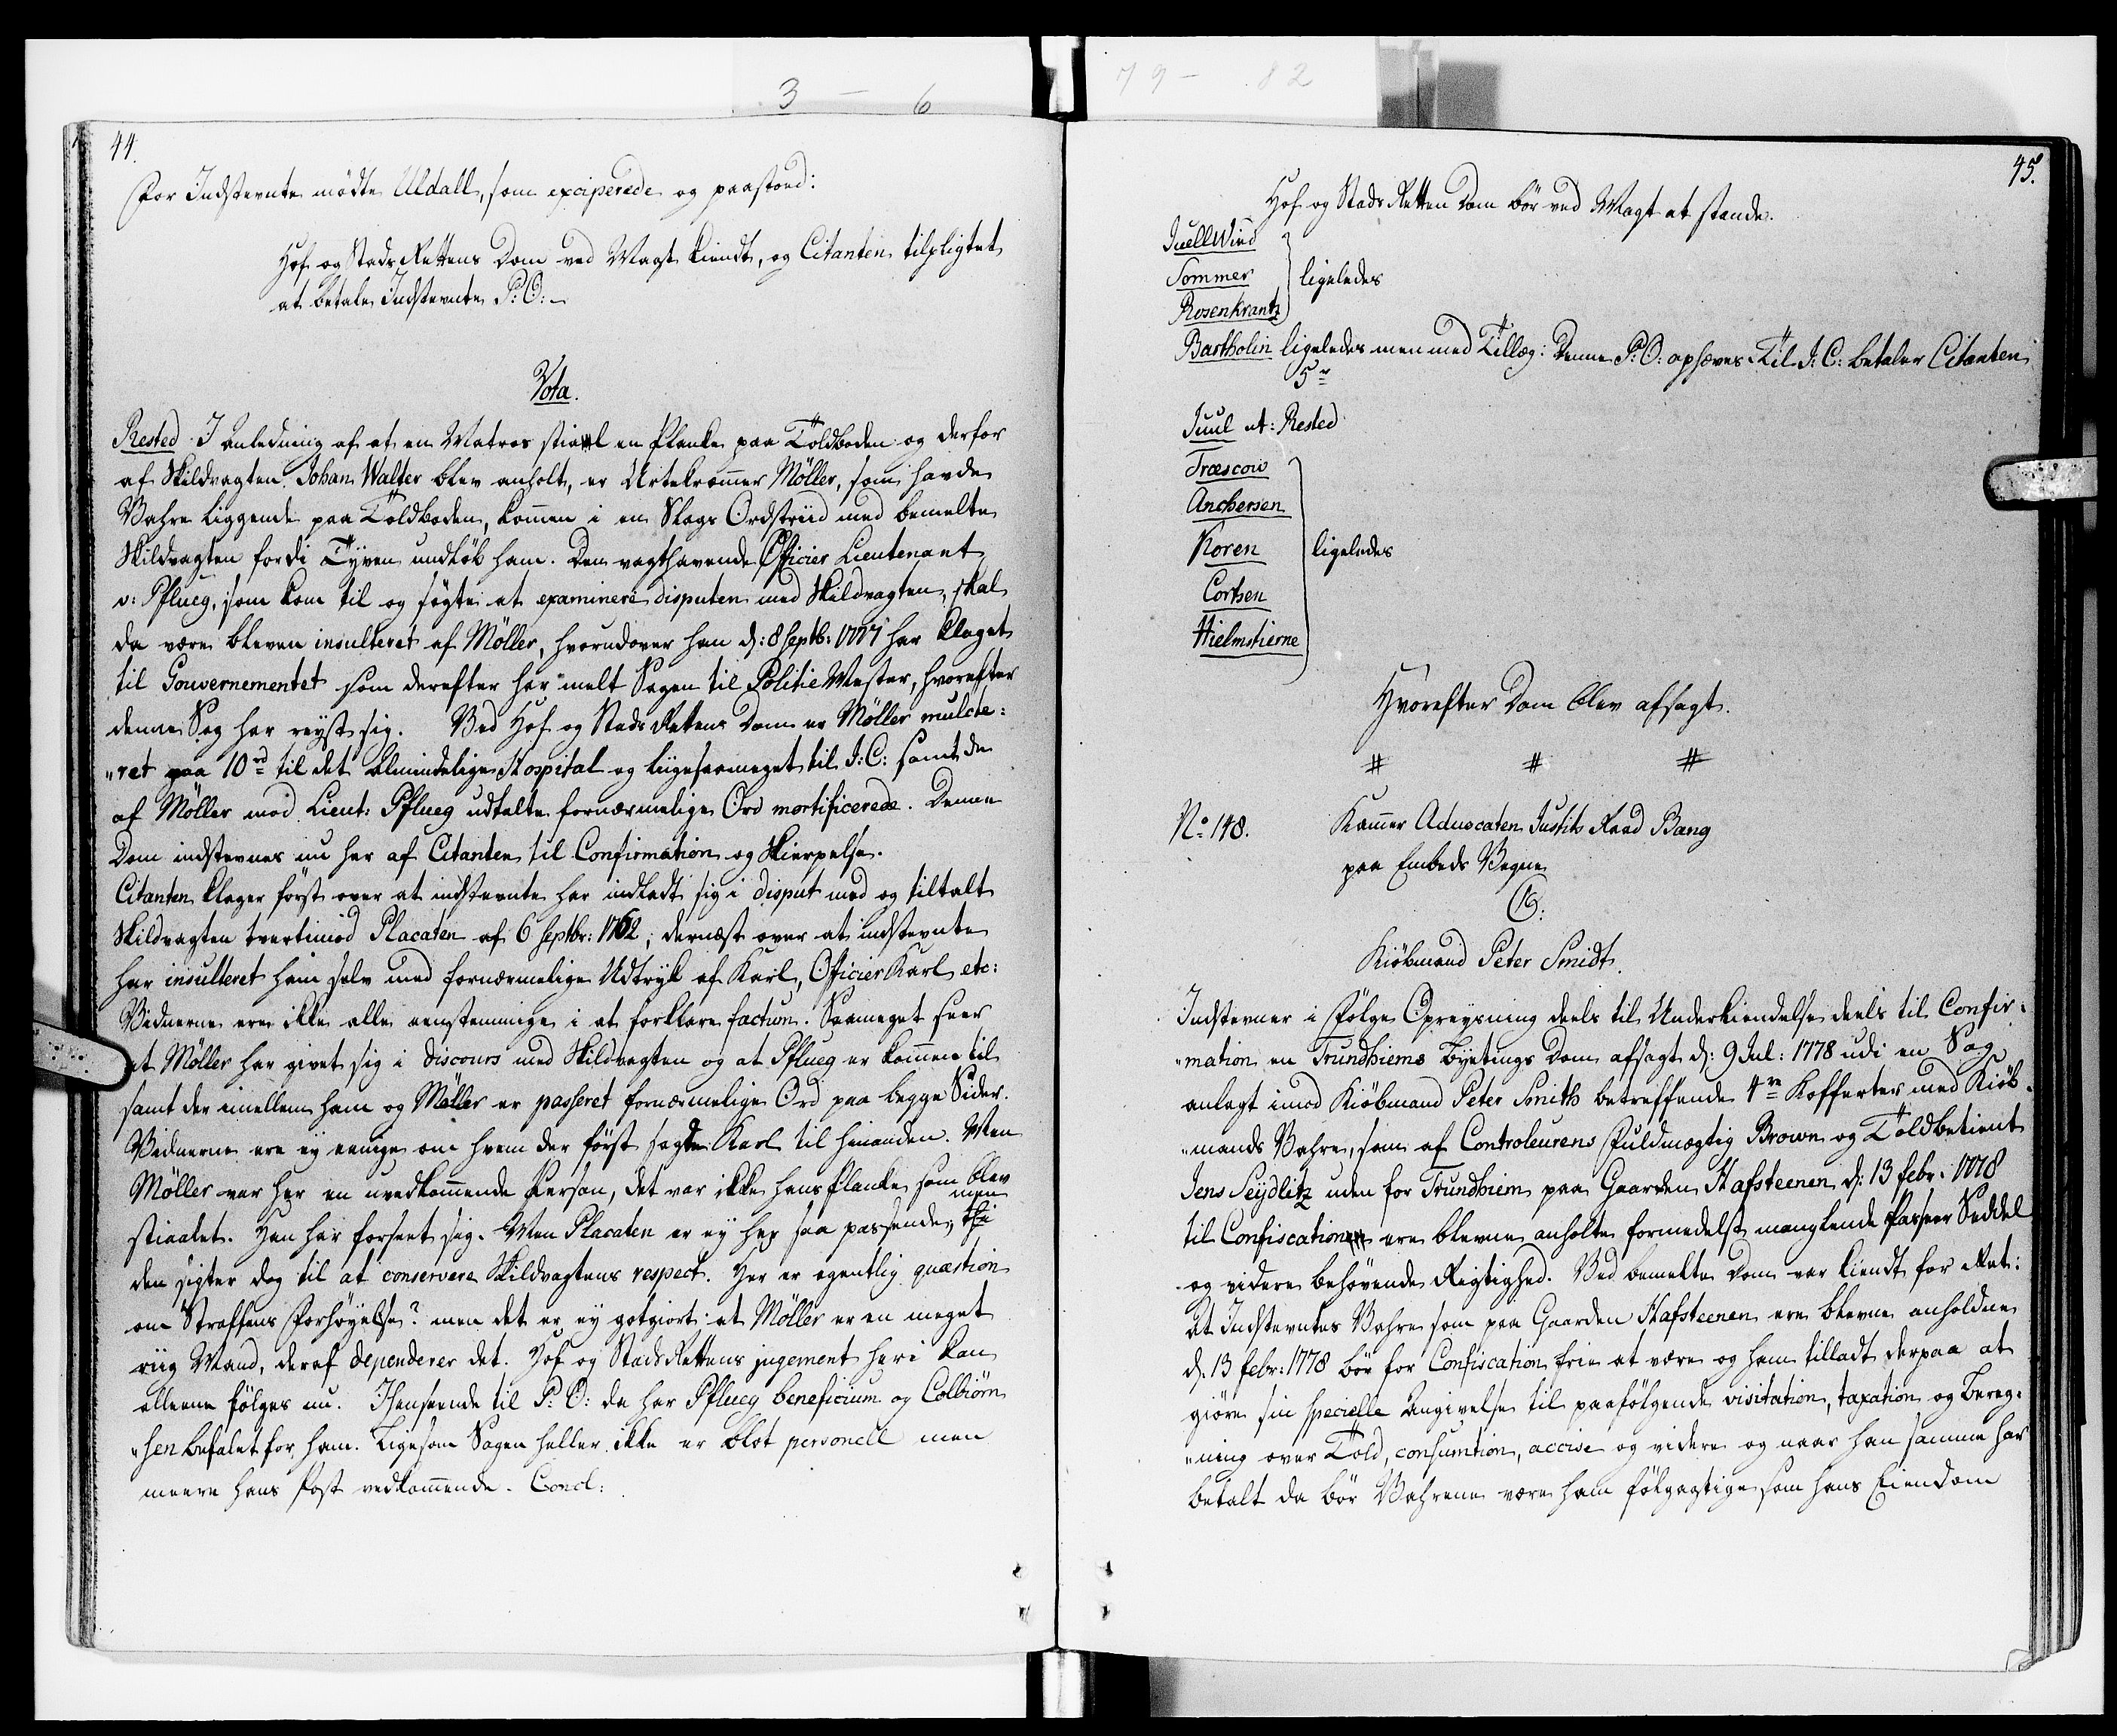 3 - 6
79 - 82
44.
For Indstevnte mödte Uldall, som exciperede og paastoed:
Hof og Stads Rettens Dom ved Magt kiendt, og Citanten tilpligtet
at betale Indstevnte P: O:
Vota.
Rested I Anledning af at en Matros stiaal en Planke paa Toldboden og derfor
af Skildvagten Johan Walter blev anholt, er Urtekræmer Möller, som havde
Vahre liggende paa Toldboden, kommen i en Slags Ordstriid med bemelte
Skildvagten fordi Tyven undlöb ham. Den vagthavende Officier Lieutenant
v: Pflueg, som kom til og søgte at examinere disputen med Skildvagten, skal
da være bleven insulteret af Möller, hvorudover han d: 8 Septb: 1777 har klaget
til Gouvernementet som derefter har melt Sagen til Politie Mester, hvorefter
denne Sag har reyst sig. Ved Hof og Stads Rettens Dom er Möller mulcte:
"ret paa 10 rd til det almindelige Hospital og liigesaameget til J: C: samt de
af Möller mod Lieut: Pflueg udtalte fornærmelige Ord mortificerede. Denne
Dom indstevnes nu her af Citanten til Confirmation og Skierpelse.
Citanten klager först over at indstevnte har indladt sig i disput med og tiltalt
Skildvagten tvertimod Placaten af 6 Septbr: 1762, dernæst over at indstevnte
har insulteret ham selv med fornærmelige Udtryk af Karl, Officier Karl etc:
Vidnerne ere ikke alle eenstemmige i at forklare factum. Saameget sees
at Möller har givet sig i discours med Skildvagten og at Pflueg er kommen til
samt der imellem ham og Möller er passeret fornærmelige Ord paa begge Sider.
Vidnerne ere ey eenige om hvem der först sagde Karl til hinanden. Men
Möller var her en uvedkommende Person, det var ikke hans Planke som blev
men
stiaalet. Han har forseet sig. Men Placaten er ey her saa passende, thi
den sigter dog til at conservere Skildvagtens respect. Her er egentlig quæstion
om Straffens Forhöyelse? men det er ey godgiort at Möller er en meget
riig Mand, deraf dependerer det. Hof og Stads Rettens jugement heri kan
alleene fölges nu. Henseende til P: O: da har Pflueg beneficium og Colbiörn
"sen befalet for ham. Ligesom Sagen heller ikke er blot personell men
meere hans Post vedkommende. Concl:
45.
Hof og Stads Retten Dom bör ved Magt at stande.
Juell Wind
Sommer ligeledes
Rosenkrantz
Bartholin ligeledes men med Tillæg: Denne P: O: ophæves. Til J: C: betaler Citanten
5 r
Juul ut: Rested
Træscow
Anchersen
Koren ligeledes
Cortsen
Hielmstierne
Hvorefter Dom blev afsagt.
# # #
No 148. Kammer Advocaten Justits Raad Bang
paa Embeds Vegne
C:
Kiöbmand Peter Smidt.
Indstevner i Fölge Opreysning deels til Underkiendelse deels til Confir:
"mation en Trundhiems Byetings Dom afsagt d: 9 Jul: 1778 udi en Sag
anlagt imod Kiöbmand Peter Smith betreffende 4re Kofferter med Kiöb:
"mands Vahre, som af Controleurens Fuldmægtig Brown og Toldbetient
Jens Seydlitz uden for Trundhiem paa Gaarden Hafsteenen d: 13 febr: 1778
til Confiscation ere blevne anholte formedelst manglende Passeer Seddel
og videre behövende Rigtighed. Ved bemelte Dom var kiendt for Ret:
At Indstevntes Vahre som paa Gaarden Hafsteenen ere blevne anholdne
d: 13 febr: 1778 bör for Confiscation frie at være og ham tilladt derpaa at
giöre sin specielle Angivelse til paafölgende visitation, taxation og Bereg:
"ning over Told, consumtion, accise og videre og naar han samme har
betalt da bör Vahrene være ham fölgagtige som hans Eiendom